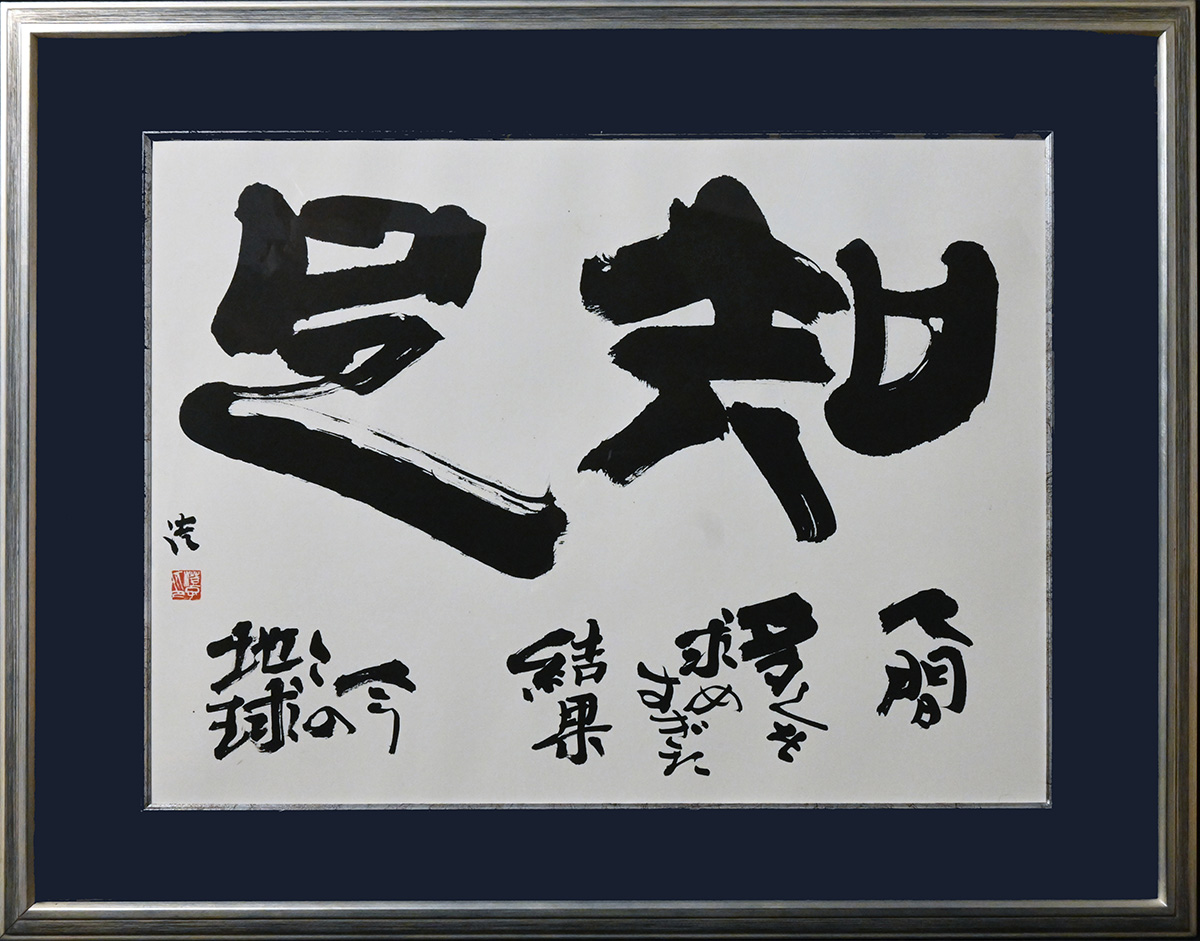 知足
人間
多くを
求めすぎた
結果
今
この
地球